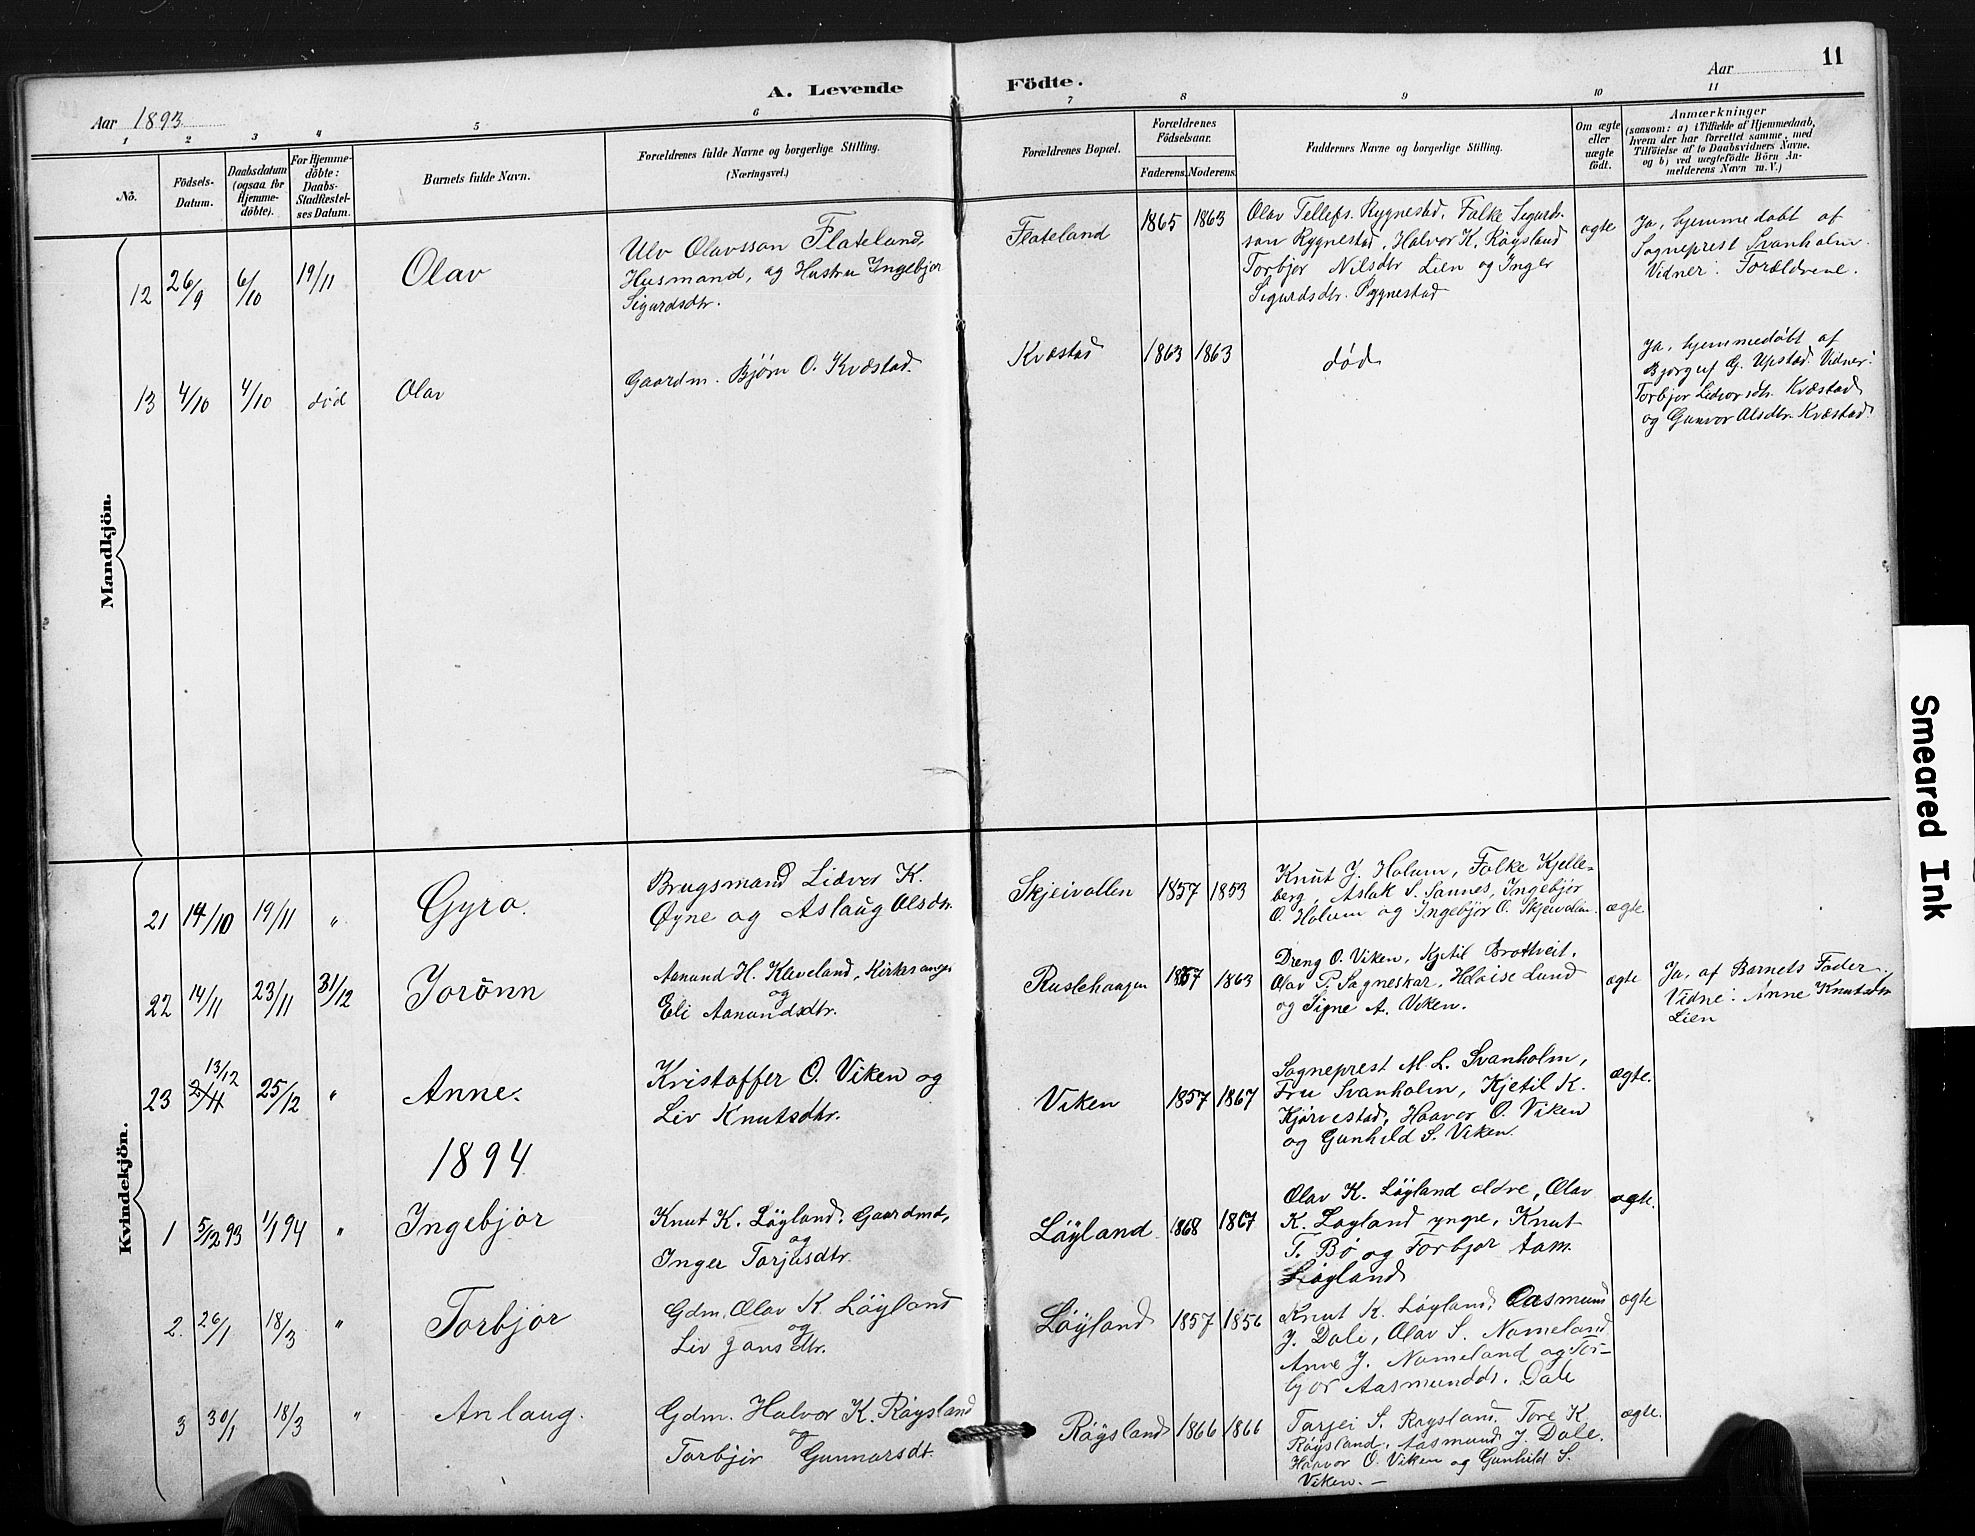 11
A. Levende Födte.
Aar 1893
Aar
1 2 3 4 5 6 7 8 9 10 11
No.
Födsels-
Datum.
Daabsdatum
(ogsaa for
Hjemme-
döbte).
For Hjemme-
döbte:
Daabs-
Stadfæstel-
ses Datum.
Barnets fulde Navn.
Forældrenes fulde Navne og borgerlige Stilling.
(Næringsvei.)
Forældrenes Bopæl.
Forældrenes
Födselsaar.
Faderens. Moderens.
Faddernes Navne og borgerlige Stilling.
Om ægte
eller
uægte
födt.
Anmærkninger
(saasom: a) i Tilfælde af Hjemmedaab,
hvem der har forrettet samme, med
Tilföielse af to Daabsvidners Navne,
og b) ved uægtefödte Börn An-
melderens Navn m. V.)
Mandkjön.
12 26/9 6/10 19/11 Olav
Ulv Olavsson Flateland,
Husmand, og Hustru Ingebjor
Sigurdsdtr.
Flateland 1865 1863
Olav Tellefs. Rygnestad, Falke Sigurds-
son Rygnestad, Halvor K. Røysland
Torbjor Nilsdtr Lien og Inger
Sigurdsdtr. Rygnestad
ægte
Ja, hjemmedøbt af
Sogneprest Svanholm.
Vidner: Forældrene.
13 4/10 4/10 død Olav
Gaardm. Bjørn O. Kvæstad.
Kvæstad 1863 1863 død
Ja, hjemmedøbt af
Bjørgulf G. Upstad. Vidner:
Torbjor Lidvorsdtr. Kvæstad
og Gunvor Olsdtr. Kvæstad.
Kvindekjön.
21 14/10 19/11 " Gyro.
Brugsmand Lidvor K.
Øyne og Aslaug Olsdtr.
Skjeivollen 1857 1853
Knut J. Holum, Falke Kjelle-
berg, Aslak S. Sannes, Ingebjor
O. Holum og Ingebjor O. Skjevolln.
ægte.
22 14/11 23/11 31/12 Jorónn
Aanund H. Kaveland, Kirkesanger
og
Eli Aanundsdtr.
Ruslehaugen 1857 1863
Dreng O. Viken, Kjetil Brottveit,
Olav P. Sagneskar, Heloise Lund
og Signe A. Viken.
ægte
Ja, af Barnets Fader.
Vidne: Anne Knutsdtr
Lien
23 13/12 25/12 " Anne.
Kristoffer O. Viken og
Liv Knutsdtr.
Viken 1857 1867
Sogneprest M. L. Svanholm,
Fru Svanholm, Kjetil K.
Kjørvestad, Haavor O. Viken
og Gunhild S. Viken.
ægte.
1894
1 5/12 93 1/1 94 " Ingebjor
Knut K. Løyland, Gaardmd,
og
Inger Torjusdtr.
Løyland 1868 1867
Olav K. Løyland eldre, Olav
K. Løyland yngre, Knut
T. Bø og Torbjor Aam.
Løyland
ægte.
2. 26/1 18/3 " Torbjor
Gdm. Olav K. Løyland
og
Liv Jonsdtr.
Løyland 1857 1856
Knut K. Løyland, Aasmund
J. Dale, Olav S. Nomeland
Anne J. Nomeland og Tor-
bjor Aasmundds. Dale
ægte
3 30/1 18/3 " Anlaug.
Gdm. Halvor K. Røysland
og
Torbjør Gunnarsdt.
Røysland 1866 1866
Tarjei S. Røysland, Tore K
Røysland, Aasmund J. Dale.
Haavor O. Viken og Gunhild S.
Viken. —
ægte.
Smeared Ink